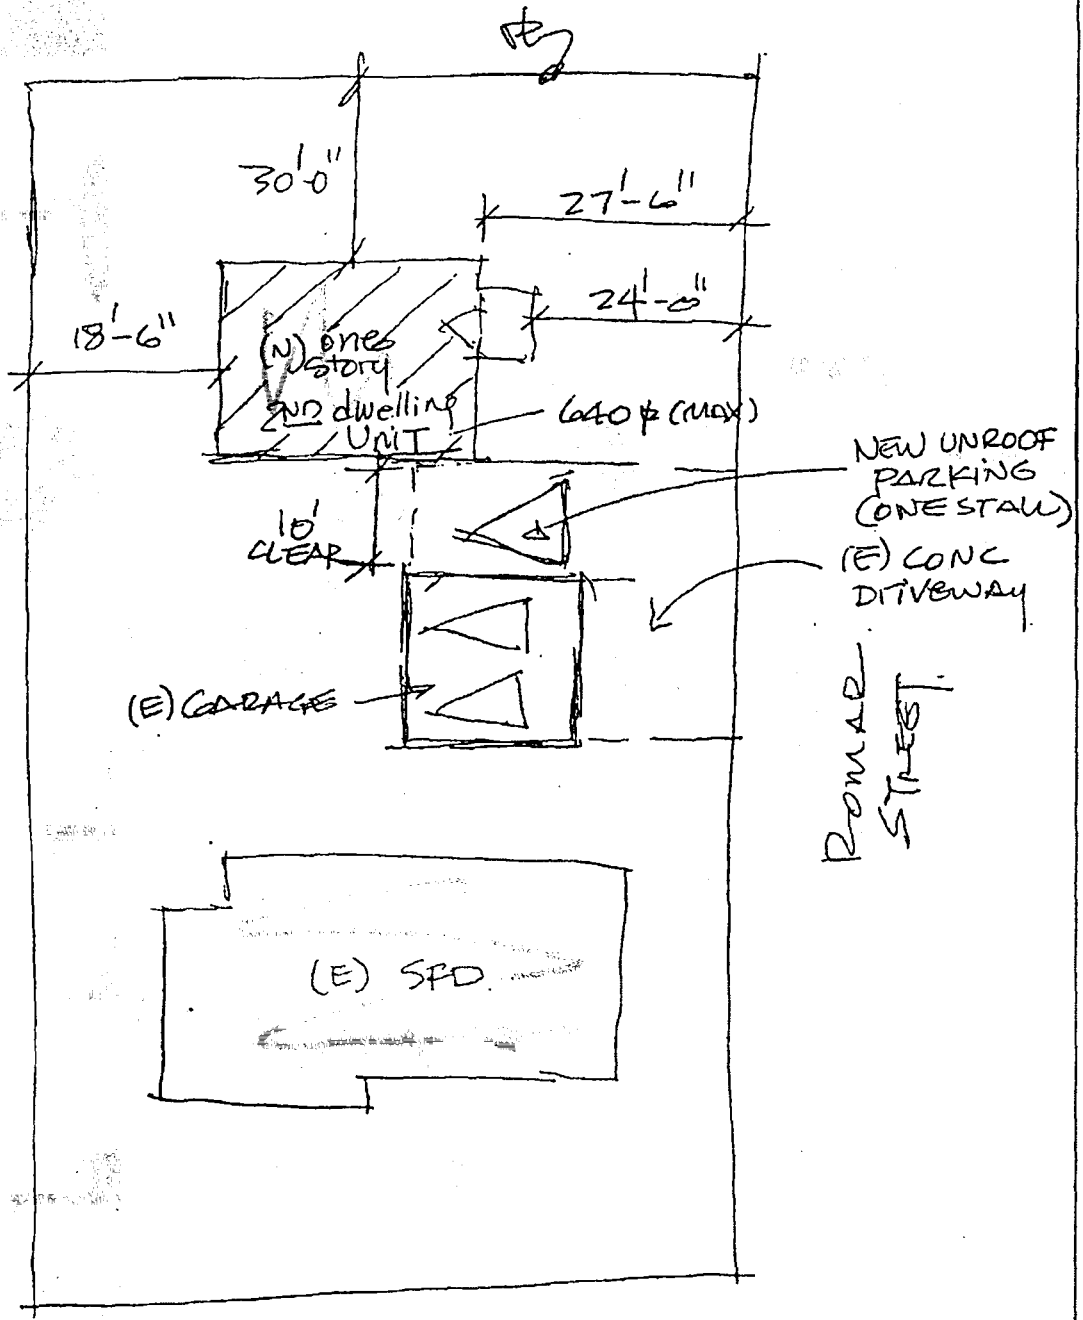 PL
30'-0"
27'-6"
24'-0"
18'-6"
(N) one
story
2ND dwelling
UNIT
640 ⌀ (MAX)
10'
CLEAR
NEW UNROOF
PARKING
(ONE STALL)
(E) CONC
DRIVEWAY
(E) GARAGE
ROMAR
STREET.
(E) SFD.